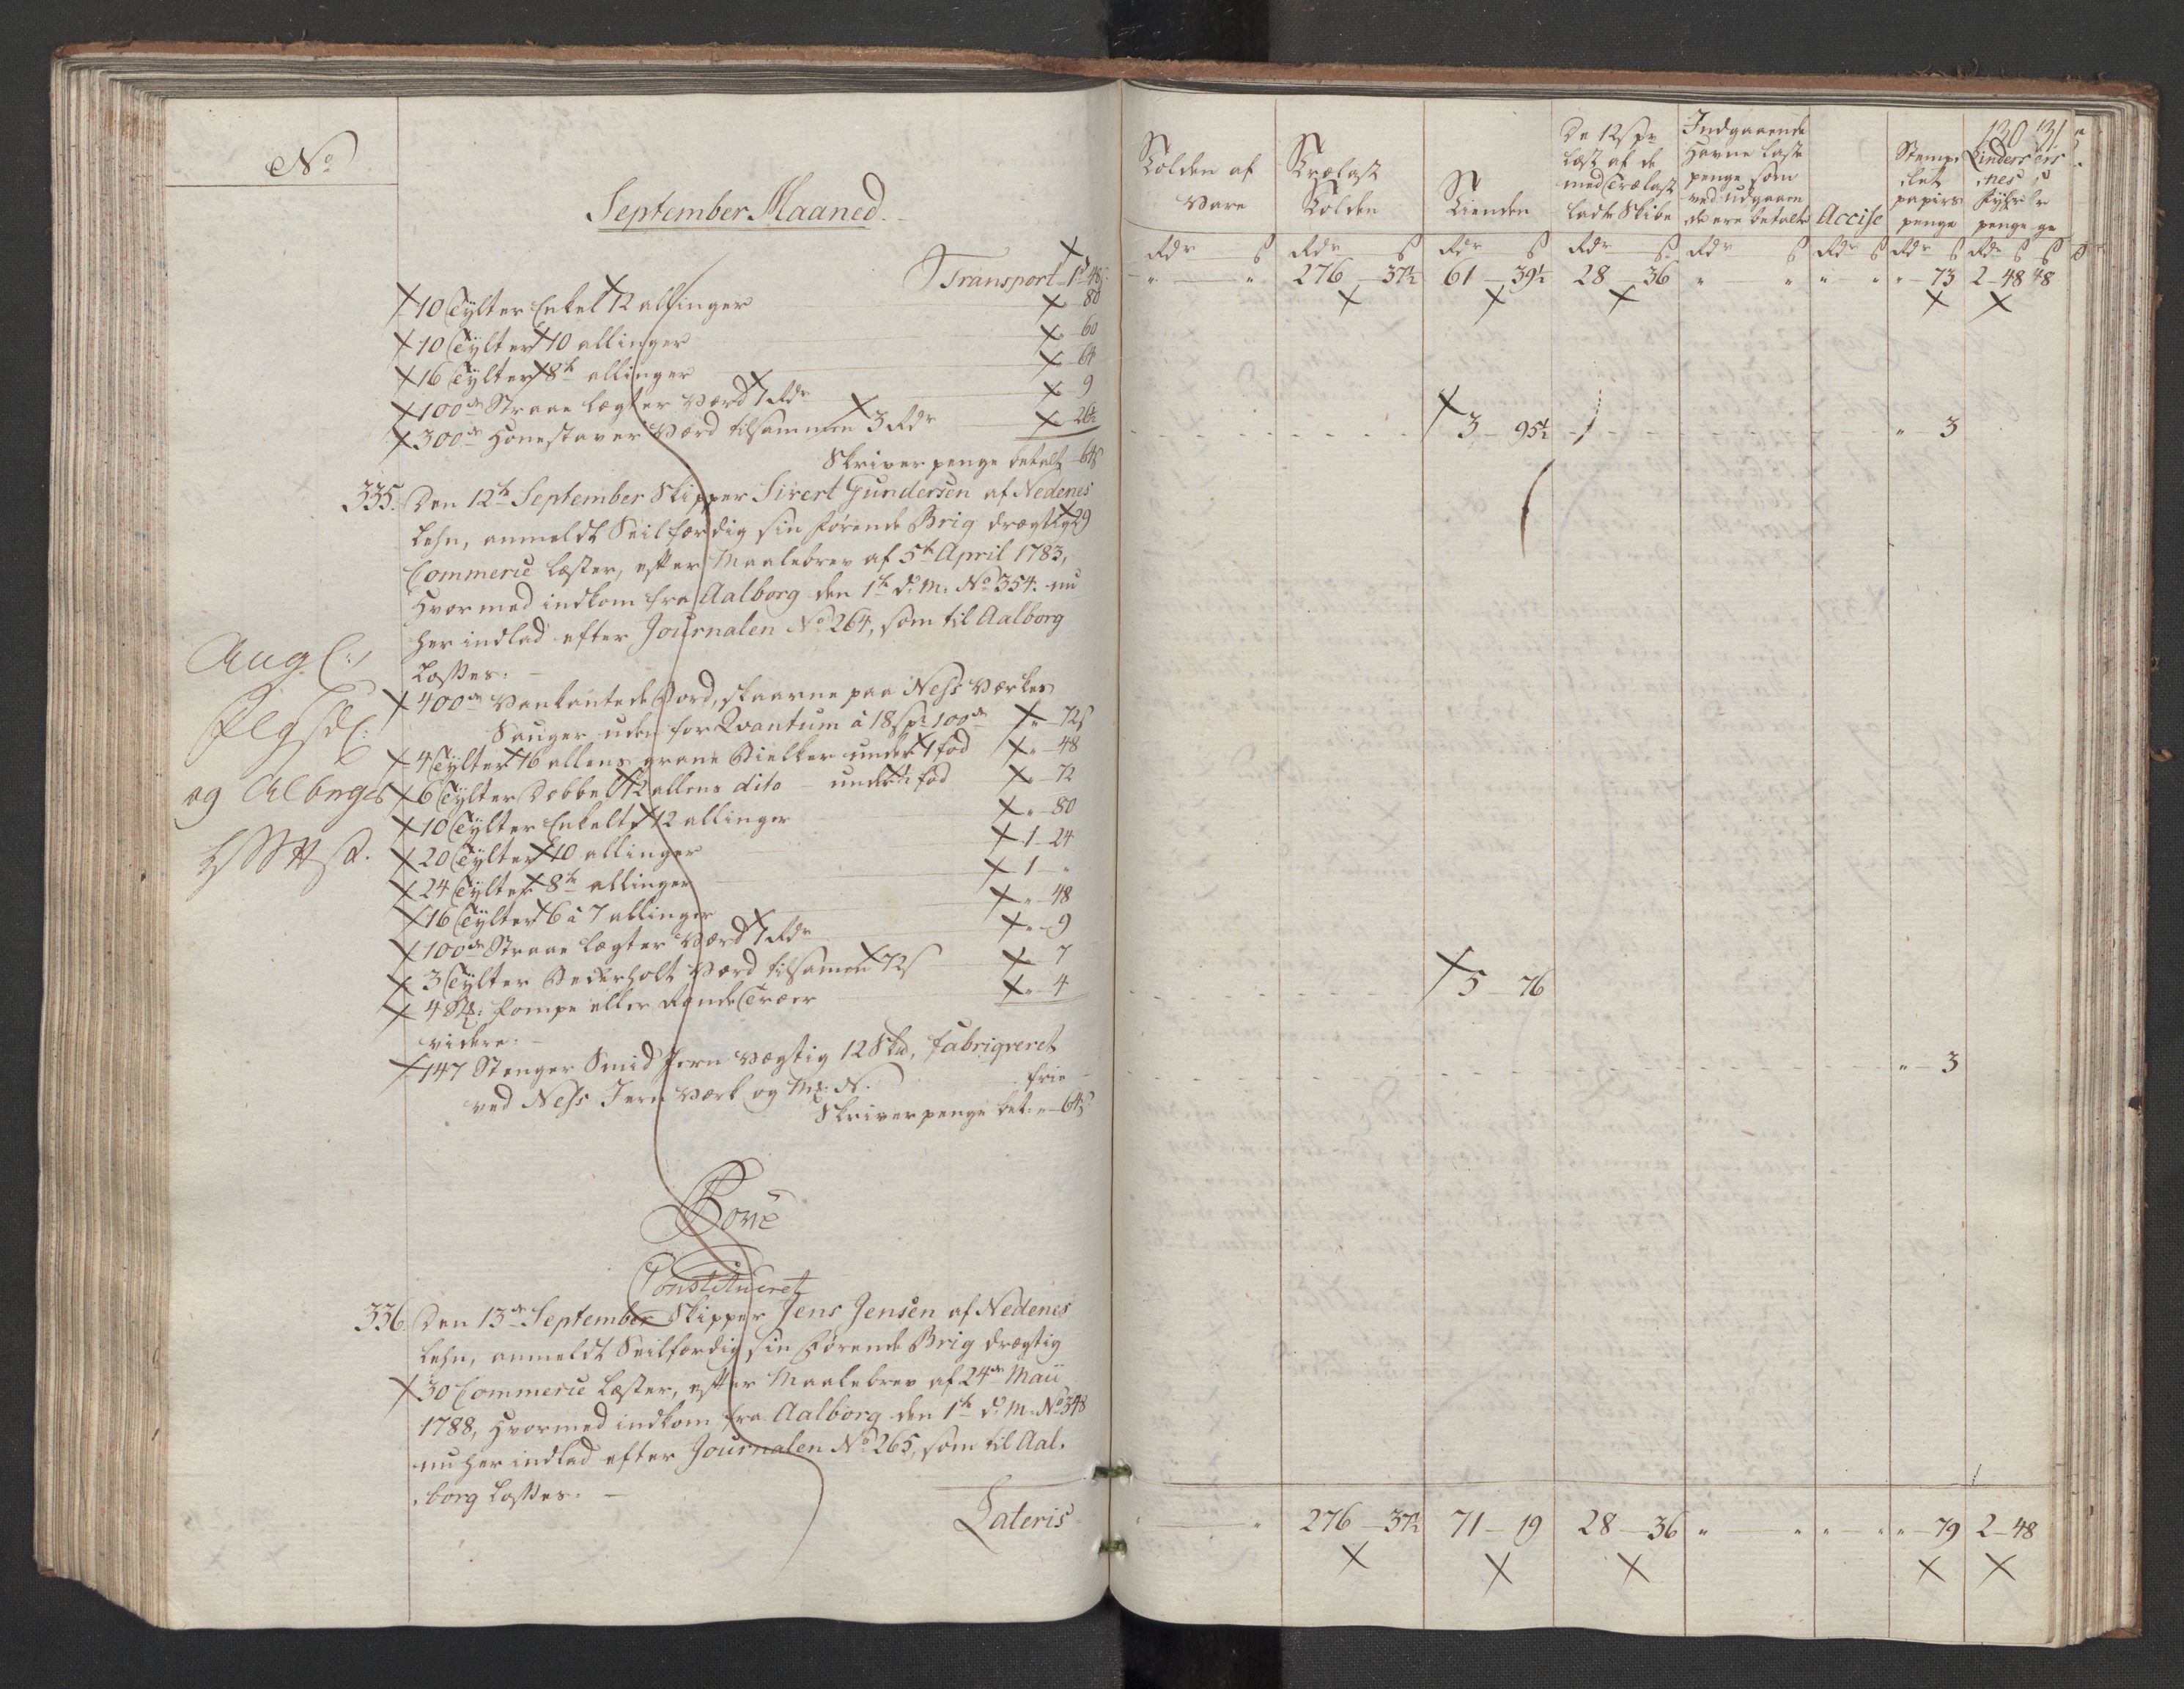 No
September Maaned.
Transport 1 48
10 Tylter Enkelt 12 allinger 80
10 Tylter 10 allinger 60
16 Tylter 8te allinger 64
100de Straae Lægter værd 1 Rdr 9
300de Honestaver værd tilsammen 3 Rdr 26½
Skriverpenge betalt 64 s
335. Den 12te September Skipper Sivert Gundersen af Nedenes
Lehn, anmeldt Seilfærdig sin førende Brig drægtig 29
Commerce Læster, efter Maalebrev af 5te April 1783,
hvormed indkom fra Aalborg den 1te d: M: No 354. nu
her indlad efter Journalen No 264, som til Aalborg
Losses. —
400de Vankantede Bord, skaarne paa Ness Værkes
Sauger uden for Qvantum à 18 s pr 100de " 72 s
4 Tylter 16 allens grane Bielker under 1 fod " 48
6 Tylter Dobbelt 12 allens dito under 1 fod " 72
10 Tylter Enkelt 12 allinger " 80
20 Tylter 10 allinger 1 24
24 Tylter 8te allinger 1 "
16 Tylter 6 à 7 allinger " 48
100de Straae Lægter værd 1 Rdr " 9
3 Tylter Vederholt værd tilsamen 72 s 7
4 Stk: Pompe eller Rande Træer " 4
videre: —
147 Stenger Smid Jern vægtig 12 Skd, fabriqveret
ved Ness Jern Værk og Mk: N. frie
Skriverpenge bet: " 64 s
Aug
og Alborgs
Bove
Constitueret
336. Den 13de September Skipper Jens Jensen af Nedenes
Lehn, anmeldt Seilfærdig sin førende Brig drægtig
30 Commerce Læster, efter Maalebrev af 24de Maii
1788, hvormed indkom fra Aalborg den 1te d: M: No 348
nu her indlad efter Journalen No 265, som til Aal-
borg Losses. —
Lateris
130 131
Tolden af Vare
Trælast Tolden
Tienden
De 12 s pr Læst af de med Trælast ladte Skibe
Indgaaende Havne Læste penge som ved udgaaende ere betalte
Accise
Stemplet papirs penge
Lindersnes Fyhr penge
Rdr s Rdr s Rdr s Rdr s Rdr s Rdr s Rdr s Rdr s
" " 276 37½ 61 39½ 28 36 " " " " " 73 2 48 48
3 95½ " 3
5 76
" 3
" " 276 37½ 71 19 28 36 " " " " " 79 2 48